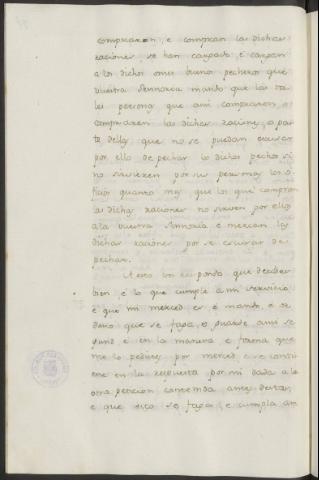 compraron, e compran las dichas
raciones, se han cargado, e cargan
a los dichos omes buenos pecheros que
vuestra Sennoria mande que las ta
les personas que ansi compraron, e
compraren las dichas raciones, o par
te dellas que no se puedan escusar
por ello de pechar los dichos pechos si
no sirvieren por sus personas los o
ficios quanto mas que los que compran
las dichas raciones no sirven por ellos
a la vuestra Sennoria e mercan las
dichas raciones por se escusar de
pechar.
A esto vos respondo que decides
bien, e lo que cumple a mi servicio
e que mi merced es e mando, e or
deno que se faga, e guarde ansi se
gund e en la manera e forma que
me lo pedistes por merced, e se contie
ne en la respuesta por mi dada a la
otra peticion contenida antes desta,
e que esto se faga, e cumpla an